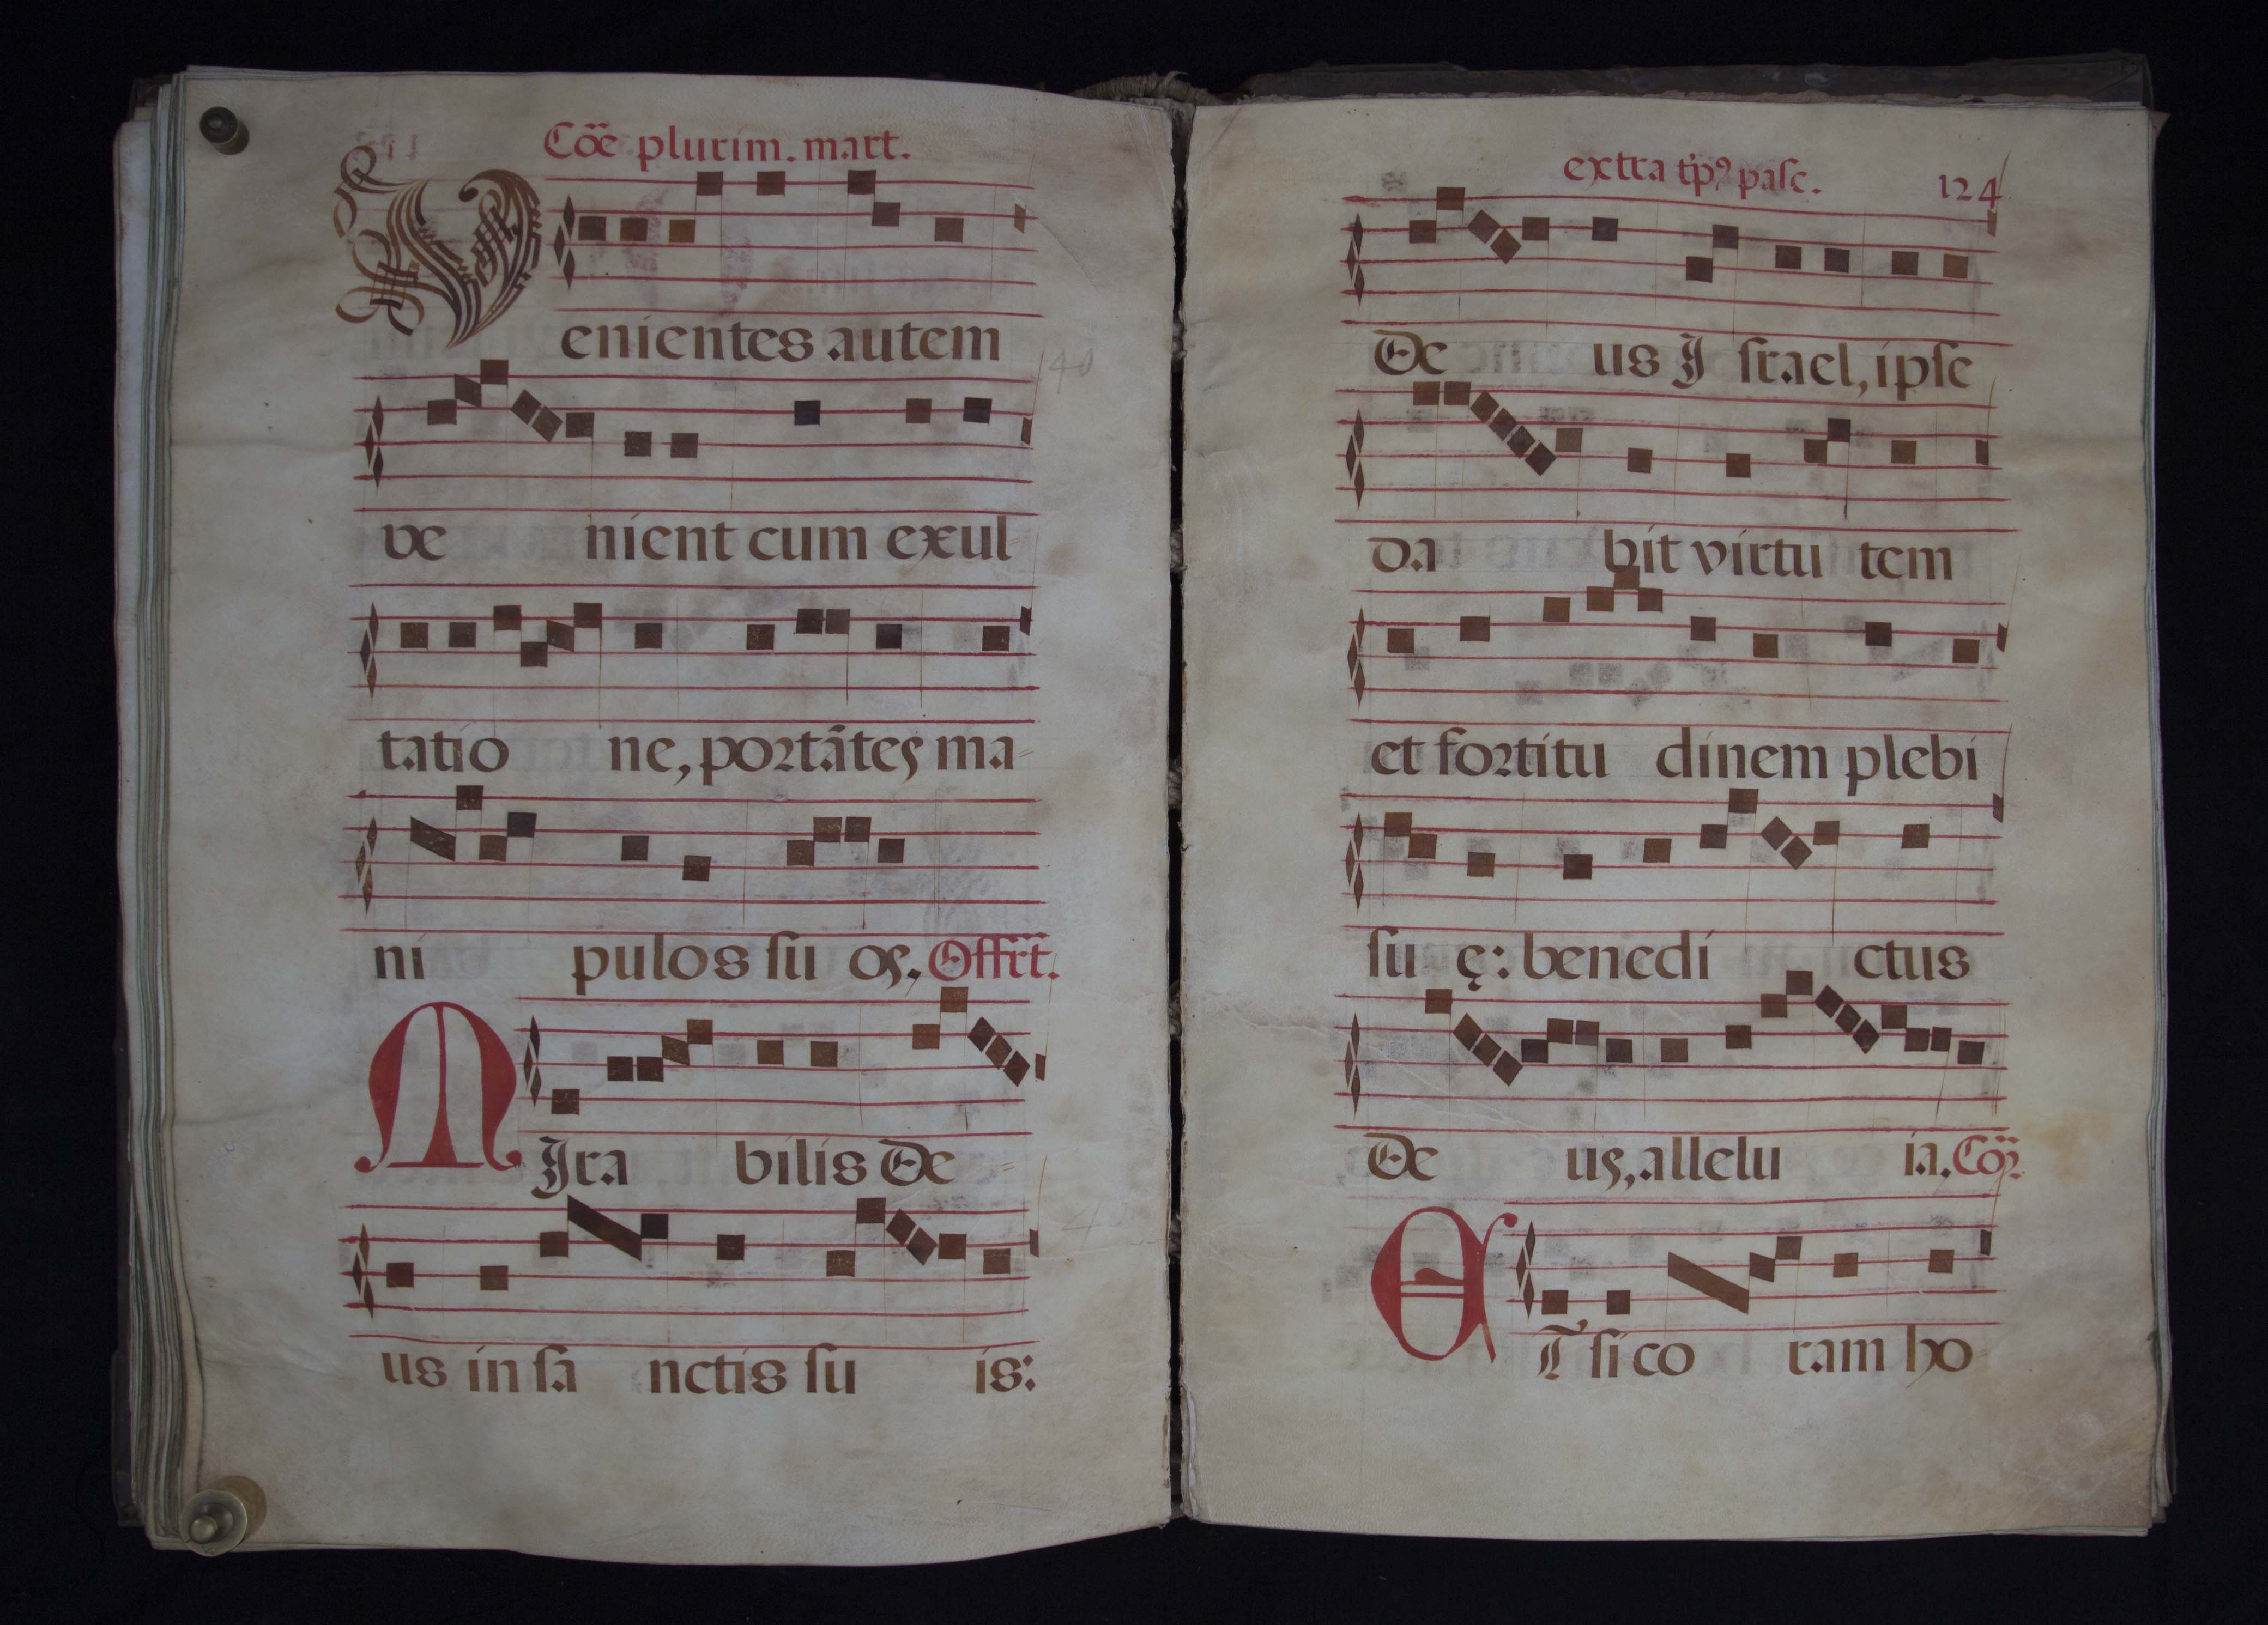 Cōe plurim. mart.
Venientes autem
ve nient cum exul
tatio ne, portātes ma-
ni pulos su os. Offrt.
MIra bilis De-
us in sa nctis su is:
extra tp̄ꝰ pasc. 124
De us I srael, ipse
da bit virtu tem
et fortitu dinem plebi
su ę: benedi ctus
De us, allelu ia. Cōꝫ
ET si co ram ho